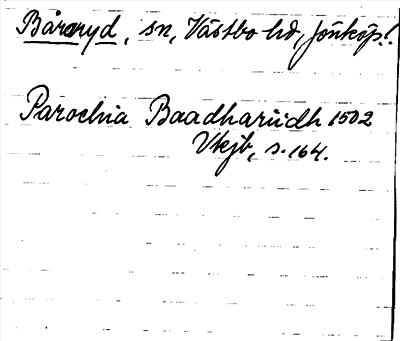 Båraryd, sn, Västbo hd, Jönköp.!
Parochia Baadharüdh 1502
Vkjb, s. 164.